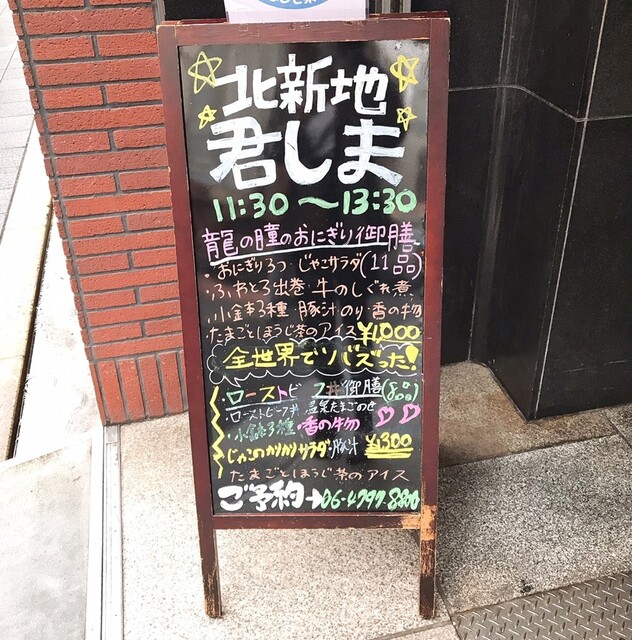 北新地
君しま
11:30〜13:30
龍の瞳のおにぎり御膳
・おにぎり3つ・じゃこサラダ(11品)
ふわとろ出巻・牛のしぐれ煮
小鉢3種・豚汁・のり・香の物
たまごとほうじ茶のアイス ¥1,000
全世界でバズった!
・ローストビーフ丼御膳(8品)
・ローストビーフ丼 温泉たまごのせ
・小鉢3種・香の物
・じゃこのカリカリサラダ・豚汁 ¥1,300
たまごとほうじ茶のアイス
ご予約→06-4797-8800